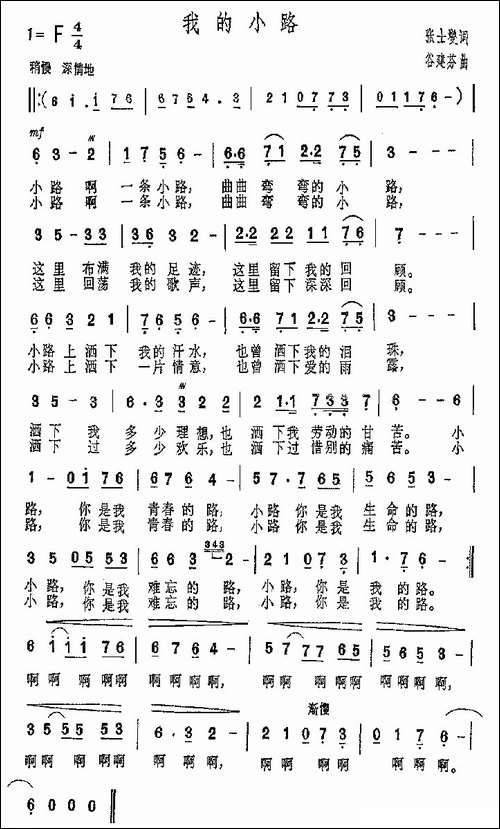 我的小路
1= F 4/4
张士燮词
谷建芬曲
稍慢 深情地
‖:( 6 1 . 1 7 6 | 6 7 6 4 . 3 | 2 1 0 7 7 3 | 0 1 1 7 6 - ) |
mf
6 3 - 2 | 1 7 5 6 - | 6·6 7 1 2·2 7 5 | 3 - - - |
小路啊 一条小路, 曲曲 弯 弯的 小 路,
小路啊 一条小路, 曲曲 弯 弯的 小 路,
3 5 - 3 3 | 3 6 3 2 - | 2·2 2 2 1 1 7 6 | 7 - - -
这里 布满 我的 足迹, 这里 留下 我的 回 顾。
这里 回荡 我的 歌声, 这里 留下 深深 回 顾。
6 6 3 2 1 | 7 6 5 6 - | 6·6 7 1 2·2 7 5 | 3 - - - |
小路上洒下 我的汗水, 也曾 洒下我的 泪 珠,
小路上洒下 一片情意, 也曾 洒下爱的 雨 露,
3 5 - 3 | 6 · 3 3 2 | 2 1·1 7 3 3 7 | 6 - - 6
洒下 我 多少理想,也 洒下我 劳动的 甘 苦。 小
洒下 过 多少欢乐,也 洒下过 惜别的 痛 苦。 小
1 - 0 1 7 6 | 6 7 6 4 - | 5 7 · 7 6 5 | 5 6 5 3 - |
路, 你是我 青春的路, 小路 你 是我 生命的路,
路, 你是我 青春的路, 小路 你 是我 生命的路,
3 5 0 5 5 3 | 6 6 3 343 2 - | 2 1 0 7 3 | 1 · 7 6 - :‖
小路, 你是我 难忘的 路, 小路, 你 是 我 的路。
小路, 你是我 难忘的 路, 小路, 你 是 我 的路。
6 1 1 1 7 6 | 6 7 6 4 - | 5 7 7 7 6 5 | 5 6 5 3 - |
啊啊 啊 啊啊 啊啊啊啊, 啊啊 啊 啊啊 啊啊啊啊,
渐慢
3 5 5 5 5 3 | 6 · 3 2 - | 2 1 0 7 3 | 0 1 7 6 - |
啊啊 啊 啊啊 啊 啊啊, 啊 啊 啊啊 啊 啊 啊。
6 0 0 0 ‖